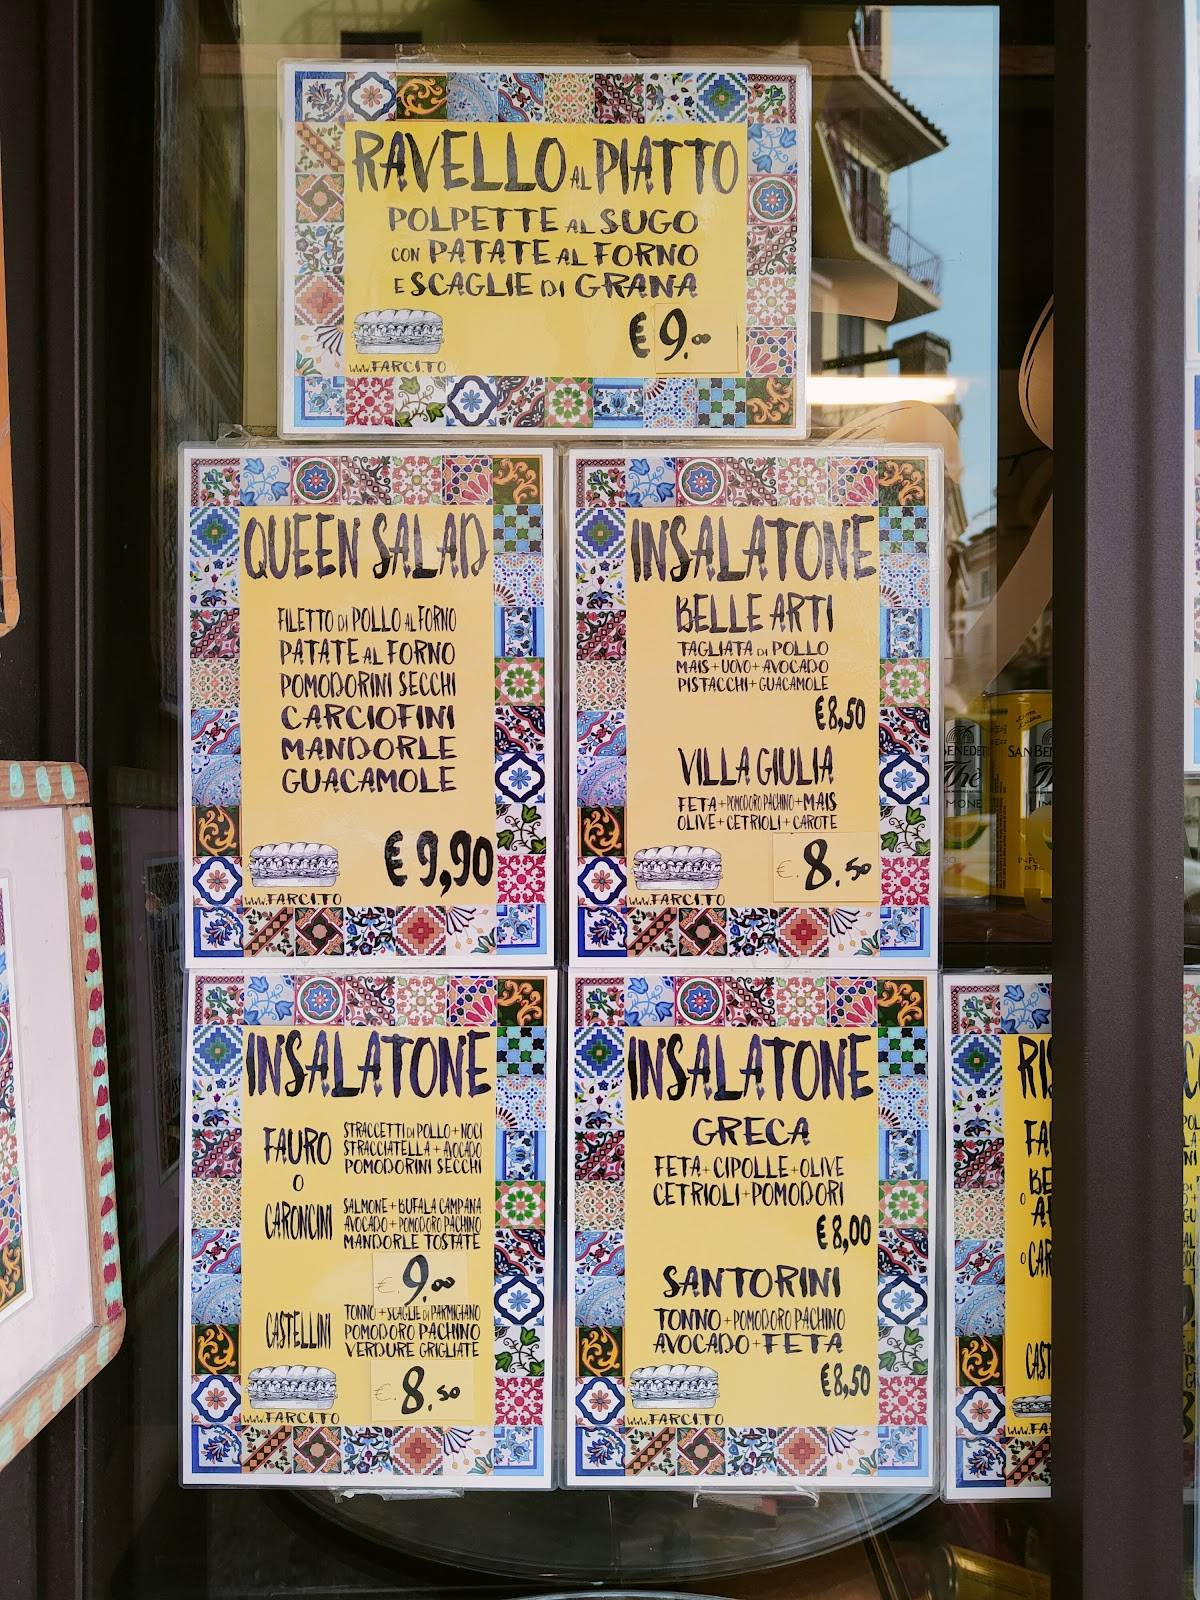 RAVELLO AL PIATTO
POLPETTE AL SUGO
CON PATATE AL FORNO
E SCAGLIE DI GRANA
€ 9.00
www.FARCI.TO
QUEEN SALAD
FILETTO DI POLLO AL FORNO
PATATE AL FORNO
POMODORINI SECCHI
CARCIOFINI
MANDORLE
GUACAMOLE
€ 9,90
www.FARCI.TO
INSALATONE
BELLE ARTI
TAGLIATA DI POLLO
MAIS + UOVO + AVOCADO
PISTACCHI + GUACAMOLE
€8,50
VILLA GIULIA
FETA + POMODORO PACHINO + MAIS
OLIVE + CETRIOLI + CAROTE
€. 8.50
www.FARCI.TO
INSALATONE
FAURO
STRACCETTI DI POLLO + NOCI
STRACCIATELLA + AVOCADO
POMODORINI SECCHI
O
CARONCINI
SALMONE + BUFALA CAMPANA
AVOCADO + POMODORO PACHINO
MANDORLE TOSTATE
€. 9.00
CASTELLINI
TONNO + SCAGLIE DI PARMIGIANO
POMODORO PACHINO
VERDURE GRIGLIATE
€. 8.50
www.FARCI.TO
INSALATONE
GRECA
FETA + CIPOLLE + OLIVE
CETRIOLI + POMODORI
€8,00
SANTORINI
TONNO + POMODORO PACHINO
AVOCADO + FETA
€8,50
www.FARCI.TO
SAN BEN
Thè